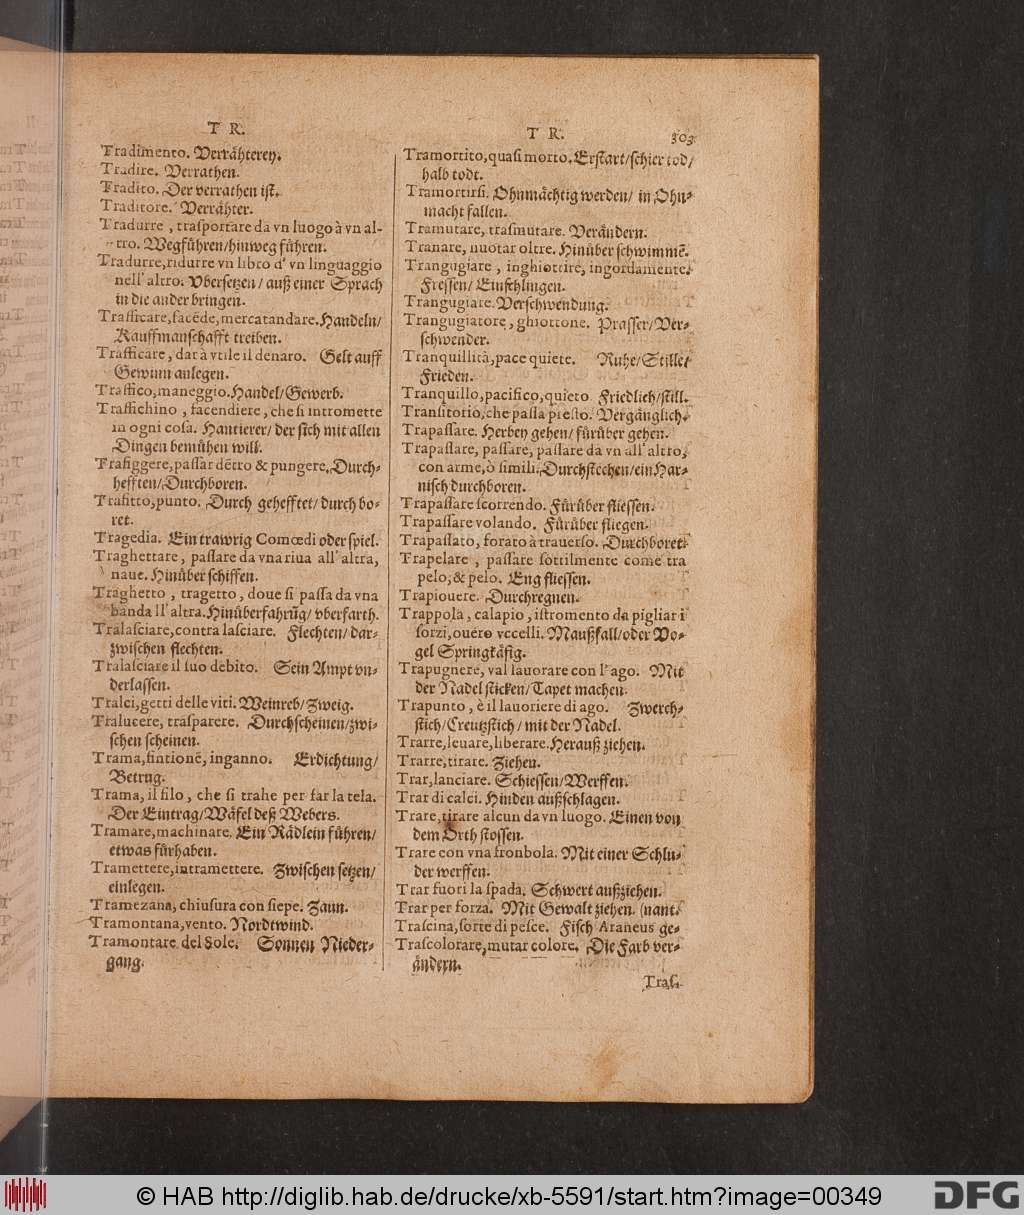 T R.
Tradimento. Verrähterey.
Tradire. Verrathen.
Tradito. Der verrathen ist.
Traditore. Verrähter.
Tradurre, trasportare da vn luogo à vn al-
tro. Wegführen/hinweg führen.
Tradurre, ridurre vn libro d' vn linguaggio
nell' altro. Vbersetzen/ auß einer Sprach
in die ander bringen.
Trafficare, facēde, mercatandare. Handeln/
Kauffmanschafft treiben.
Trafficare, dar à vtile il denaro. Gelt auff
Gewinn anlegen.
Traffico, maneggio. Handel/Gewerb.
Traffichino, facendiere, che si intromette
in ogni cosa. Hantierer/ der sich mit allen
Dingen bemühen will.
Trafiggere, passar dētro & pungere. Durch-
hefften/Durchboren.
Trafitto, punto. Durch gehefftet/ durch bo-
ret.
Tragedia. Ein trawrig Comœdi oder spiel.
Traghettare, passare da vna riua all' altra,
naue. Hinüber schiffen.
Traghetto, tragetto, doue si passa da vna
banda ll' altra. Hinüberfahrūg/ vberfarth.
Tralasciare, contra lasciare. Flechten/ dar-
zwischen flechten.
Tralasciare il suo debito. Sein Ampt vn-
derlassen.
Tralci, getti delle viti. Weinreb/Zweig.
Tralucere, trasparere. Durchscheinen/zwi-
schen scheinen.
Trama, fintionē, inganno. Erdichtung/
Betrug.
Trama, il filo, che si trahe per far la tela.
Der Eintrag/Wäfel deß Webers.
Tramare, machinare. Ein Rädlein führen/
etwas fürhaben.
Tramettere, intramettere. Zwischen setzen/
einlegen.
Tramezana, chiusura con siepe. Zaun.
Tramontana, vento. Nordtwind.
Tramontare del Sole. Sonnen Nieder-
gang.
T R. 303
Tramortito, quasi morto. Erstart/schier tod/
halb todt.
Tramortirsi. Ohnmächtig werden/ in Ohn-
macht fallen.
Tramutare, trasmutare. Verändern.
Tranare, nuotar oltre. Hinüber schwimmē.
Trangugiare, inghiottire, ingordamente.
Fressen/ Einschlingen.
Trangugiare. Verschwendung.
Trangugiatore, ghiottone. Prasser/Ver-
schwender.
Tranquillità, pace quiete. Ruhe/Stille/
Frieden.
Tranquillo, pacifico, quieto Friedlich/still.
Transitotio, che passa presto. Vergänglich.
Trapassare. Herbey gehen/ fürüber gehen.
Trapassare, passare, passare da vn all' altro,
con arme, ò simili. Durchstechen/ein Har-
nisch durchboren.
Trapassare scorrendo. Fürüber fliessen.
Trapassare volando. Fürüber fliegen.
Trapassato, forato à trauerso. Durchboret.
Trapelare, passare sottilmente come tra
pelo, & pelo. Eng fliessen.
Trapiouere. Durchregnen.
Trappola, calapio, istromento da pigliar i
sorzi, ouero vccelli. Maußfall/oder Vo-
gel Springkäfig.
Trapugnere, val lauorare con l' ago. Mit
der Nadel sticken/ Tapet machen.
Trapunto, è il lauoriere di ago. Zwerch-
stich/Creutzstich/ mit der Nadel.
Trarre, leuare, liberare. Herauß ziehen.
Trarre, tirare. Ziehen.
Trar, lanciare. Schiessen/Werffen.
Trar di calci. Hinden außschlagen.
Trare, tirare alcun da vn luogo. Einen von
dem Orth stossen.
Trare con vna fronbola. Mit einer Schlu-
der werffen.
Trar fuori la spada. Schwert außziehen.
Trar per forza. Mit Gewalt ziehen. (nant.
Trascina, sorte di pesce. Fisch Araneus ge-
Trascolorare, mutar colore. Die Farb ver-
ändern.
Tras-
© HAB http://diglib.hab.de/drucke/xb-5591/start.htm?image=00349
DFG